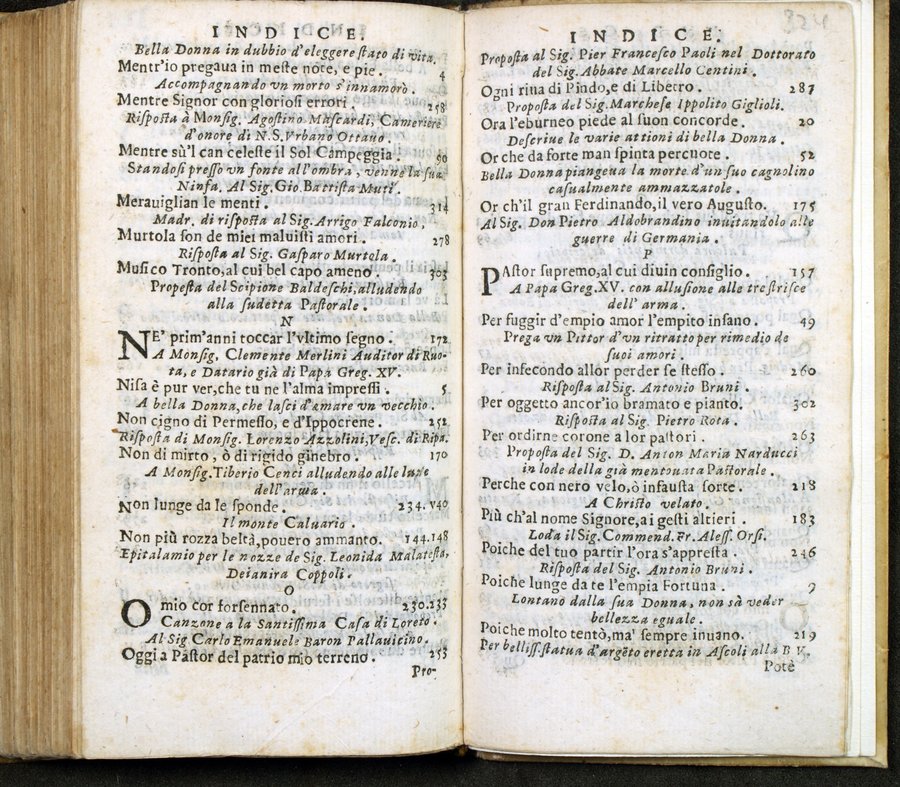 INDICE.
Bella Donna in dubbio d'eleggere ſtato di vita.
Mentr'io pregaua in meſte note, e pie. 4
Accompagnando vn morto s'innamorò.
Mentre Signor con glorioſi errori. 258
Riſpoſta à Monſig. Agoſtino Maſcardi, Cameriere
d'onore di N.S. Vrbano Ottauo.
Mentre sù'l can celeſte il Sol Campeggia. 50
Standoſi preſſo vn fonte all'ombra, venne la ſua
Ninfa. Al Sig. Gio. Battiſta Muti.
Merauiglian le menti. 314
Madr. di riſpoſta al Sig. Arrigo Falconio,
Murtola ſon de miei maluiſti amori. 278
Riſpoſta al Sig. Gaſparo Murtola.
Muſico Tronto, al cui bel capo ameno. 303
Propeſta del Scipione Baldeſchi, alludendo
alla ſudetta Paſtorale.
N
NE' prim'anni toccar l'vltimo ſegno. 172
A Monſig. Clemente Merlini Auditor di Ruo-
ta, e Datario già di Papa Greg. XV.
Niſa è pur ver, che tu ne l'alma impreſſi. 5
A bella Donna, che laſci d'amare vn vecchio.
Non cigno di Permeſſo, e d'Ippocrene. 252
Riſpoſta di Monſig. Lorenzo Azzolini, Veſc. di Ripa.
Non di mirto, ò di rigido ginebro. 170
A Monſig. Tiberio Cenci alludendo alle lune
dell'arma.
Non lunge da le ſponde. 234. v40
Il monte Caluario.
Non più rozza beltà, pouero ammanto. 144.148
Epitalamio per le nozze de Sig. Leonida Malateſta,
Deianira Coppoli.
O
O mio cor forſennato. 230.233
Canzone a la Santiſſima Caſa di Loreto.
Al Sig Carlo Emanuele Baron Pallauicino.
Oggi a Paſtor del patrio mio terreno. 253
Pro-
324
INDICE.
Propoſta al Sig. Pier Franceſco Paoli nel Dottorato
del Sig. Abbate Marcello Centini.
Ogni riua di Pindo, e di Libetro. 287
Propoſta del Sig. Marcheſe Ippolito Giglioli.
Ora l'eburneo piede al ſuon concorde. 20
Deſcriue le varie attioni di bella Donna.
Or che da forte man ſpinta percuote. 52
Bella Donna piangeua la morte d'un ſuo cagnolino
caſualmente ammazzatole.
Or ch'il gran Ferdinando, il vero Auguſto. 175
Al Sig. Don Pietro Aldobrandino inuitandolo alle
guerre di Germania.
P
PAſtor ſupremo, al cui diuin conſiglio. 157
A Papa Greg. XV. con alluſione alle tre ſtriſce
dell'arma.
Per fuggir d'empio amor l'empito inſano. 49
Prega vn Pittor d'vn ritratto per rimedio de
ſuoi amori.
Per infecondo allor perder ſe ſteſſo. 260
Riſpoſta al Sig. Antonio Bruni.
Per oggetto ancor'io bramato e pianto. 302
Riſpoſta al Sig. Pietro Rota.
Per ordirne corone a lor paſtori. 263
Propoſta del Sig. D. Anton Maria Narducci
in lode della già mentouata Paſtorale.
Perche con nero velo, ò infauſta ſorte. 218
A Chriſto velato.
Più ch'al nome Signore, ai geſti altieri. 183
Loda il Sig. Commend. Fr. Aleſſ. Orſi.
Poiche del tuo partir l'ora s'appreſta. 246
Riſpoſta del Sig. Antonio Bruni.
Poiche lunge da te l'empia Fortuna. 9
Lontano dalla ſua Donna, non sà veder
bellezza eguale.
Poiche molto tentò, ma' ſempre inuano. 219
Per belliſſ. ſtatua d'argẽto eretta in Aſcoli alla B V.
Potè